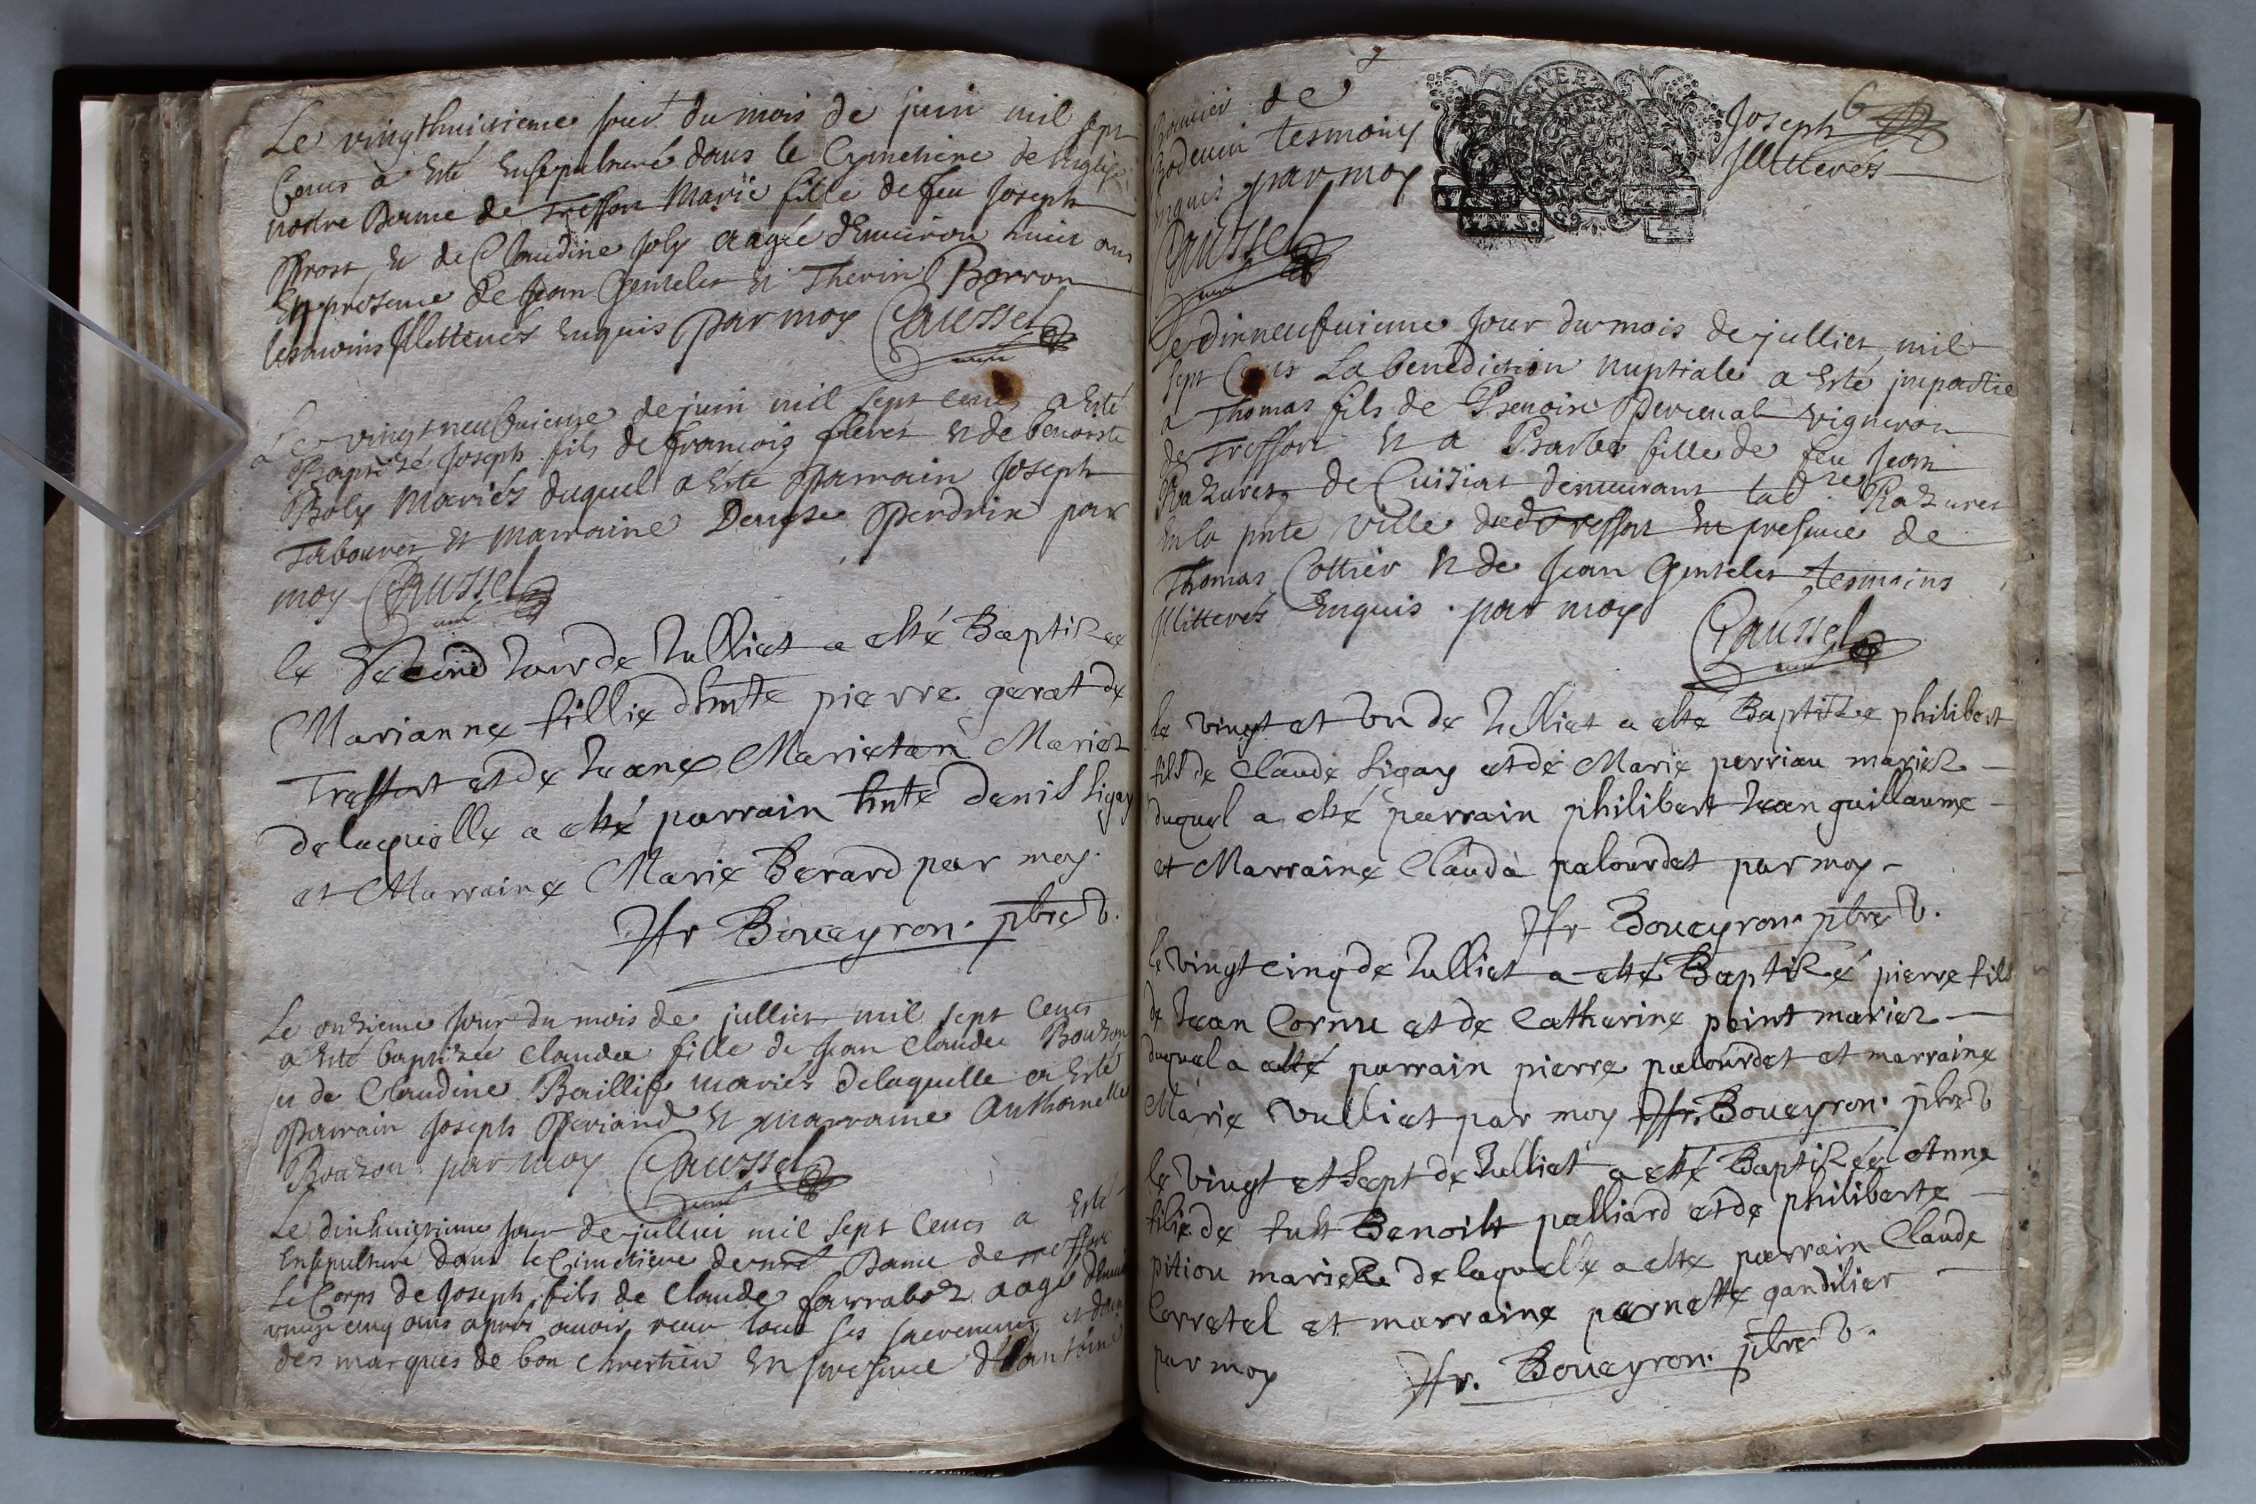 Le vingthuitieme jour du mois de juin mil sept
Cens a esté ensepulturé dans le Cymetiere de l'eglise
nostre Dame de Treffort Marie fille de feu Joseph
Prost et de Claudine Joly aagée d'environ huict ans
En presence de Jean Genteler et Thevin Borron
tesmoins Illitterés enquis par moy Caussel
Le vingtneufvieme de juin mil sept cens a esté
Baptizé Joseph fils de francois et de benoiste
Boly Mariés duquel a esté Parrain Joseph
Tabouret et Marraine Denyse Perdrix par
moy Caussel
le second Jour de Julliet a esté Baptizee
Marianne fillie d'hnte pierre gerat de
Treffort et de Jeane Marietan Mariez
de laquelle a esté parrain hnte denis ligay
et Marraine Marie Berard par moy.
Hr Boueyron. pbre v.
Le onzieme jour du mois de julliet mil sept Cens
a esté baptizée Claudee fille de Jean Claude Bouzon
et de Claudine Baillif mariés de laquelle a esté
Parrain Joseph Periand et marraine Anthoinette
Bouzon par moy Caussel
Le dixhuictieme jour de jullict mil sept Cens a esté
Ensepulturé dans le Cimetiere de nre Dame de Treffort
Le Corps de Joseph fils de Claude farraboz aagé d'environ
vingt cinq ans apres avoir receu tous ses sacremens et donné
des marques de bon chrestien en presence d'Anthoine
de Joseph
Bodevin tesmoins Illitterés
enquis par moy
Caussel
6
Le dixneufvieme jour du mois de julliet mil
sept Cens La benediction nuptiale a esté impartie
a Thomas fils de Benoist Perceval vigneron
de Treffort et a Barbe fille de feu Jean
Razuret de Cuisiat demeurant lad re Razuret
en la pnte ville dud Treffort en presence de
Thomas Cottier et de Jean Genteler tesmoins
Illitterés Enquis par moy
Caussel
le vingt et un de Julliet a esté Baptizee philibert
fils de Claude ligay et de Marie perriau mariez
duquel a esté parrain philibert Jean guillaume
et Marraine Clauda palourdet par moy
Hr Boueyron. pbre v.
le vingt cinq de Julliet a esté Baptizé pierre fils
de Jean Cornu et de Catherine point mariez
duquel a esté parrain pierre palourdet et marraine
Marie vulliet par moy Hr. Boueyron. pbre v
le vingt et sept de Julliet a esté Baptizée Anne
filie de Benoist palliard et de philiberte
pition mariez de laquelle a esté parrain Claude
Corretel et marraine pernette gandilier
par moy
Hr. Boueyron. pbre v.